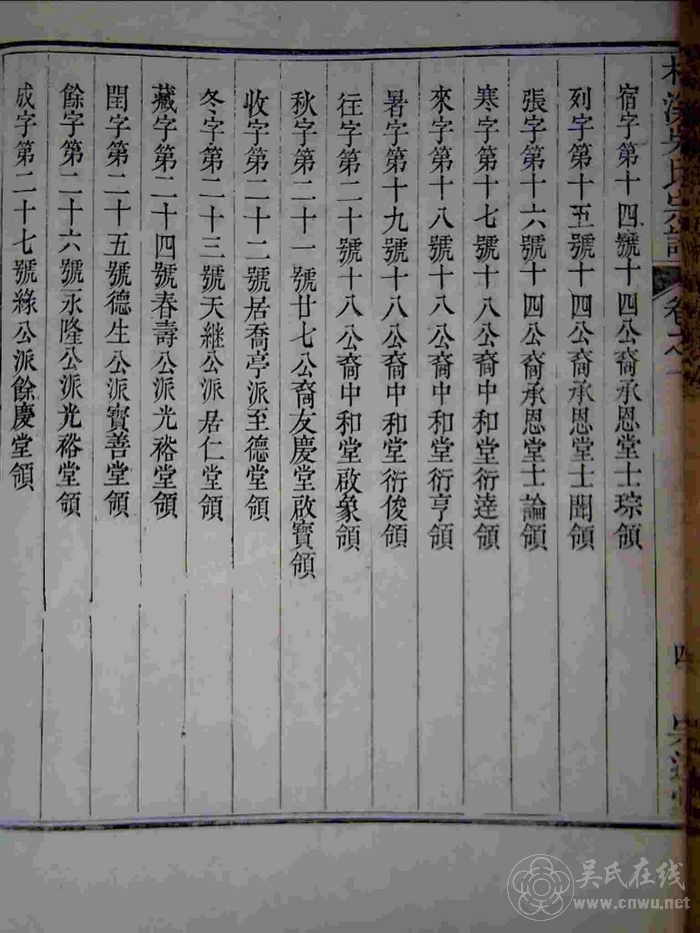 吳氏宗譜
卷之
四
宿字第十四號十四公裔承恩堂士琮領
列字第十五號十四公裔承恩堂士聞領
張字第十六號十四公裔承恩堂士論領
寒字第十七號十八公裔中和堂衍逹領
來字第十八號十八公裔中和堂衍亨領
暑字第十九號十八公裔中和堂衍俊領
往字第二十號十八公裔中和堂啟象領
秋字第二十一號廿七公裔友慶堂啟寶領
收字第二十二號居喬亭派至德堂領
冬字第二十三號天繼公派居仁堂領
藏字第二十四號春壽公派光裕堂領
閏字第二十五號德生公派寶善堂領
餘字第二十六號永隆公派光裕堂領
成字第二十七號緣公派餘慶堂領
吴氏在线
www.cnwu.net